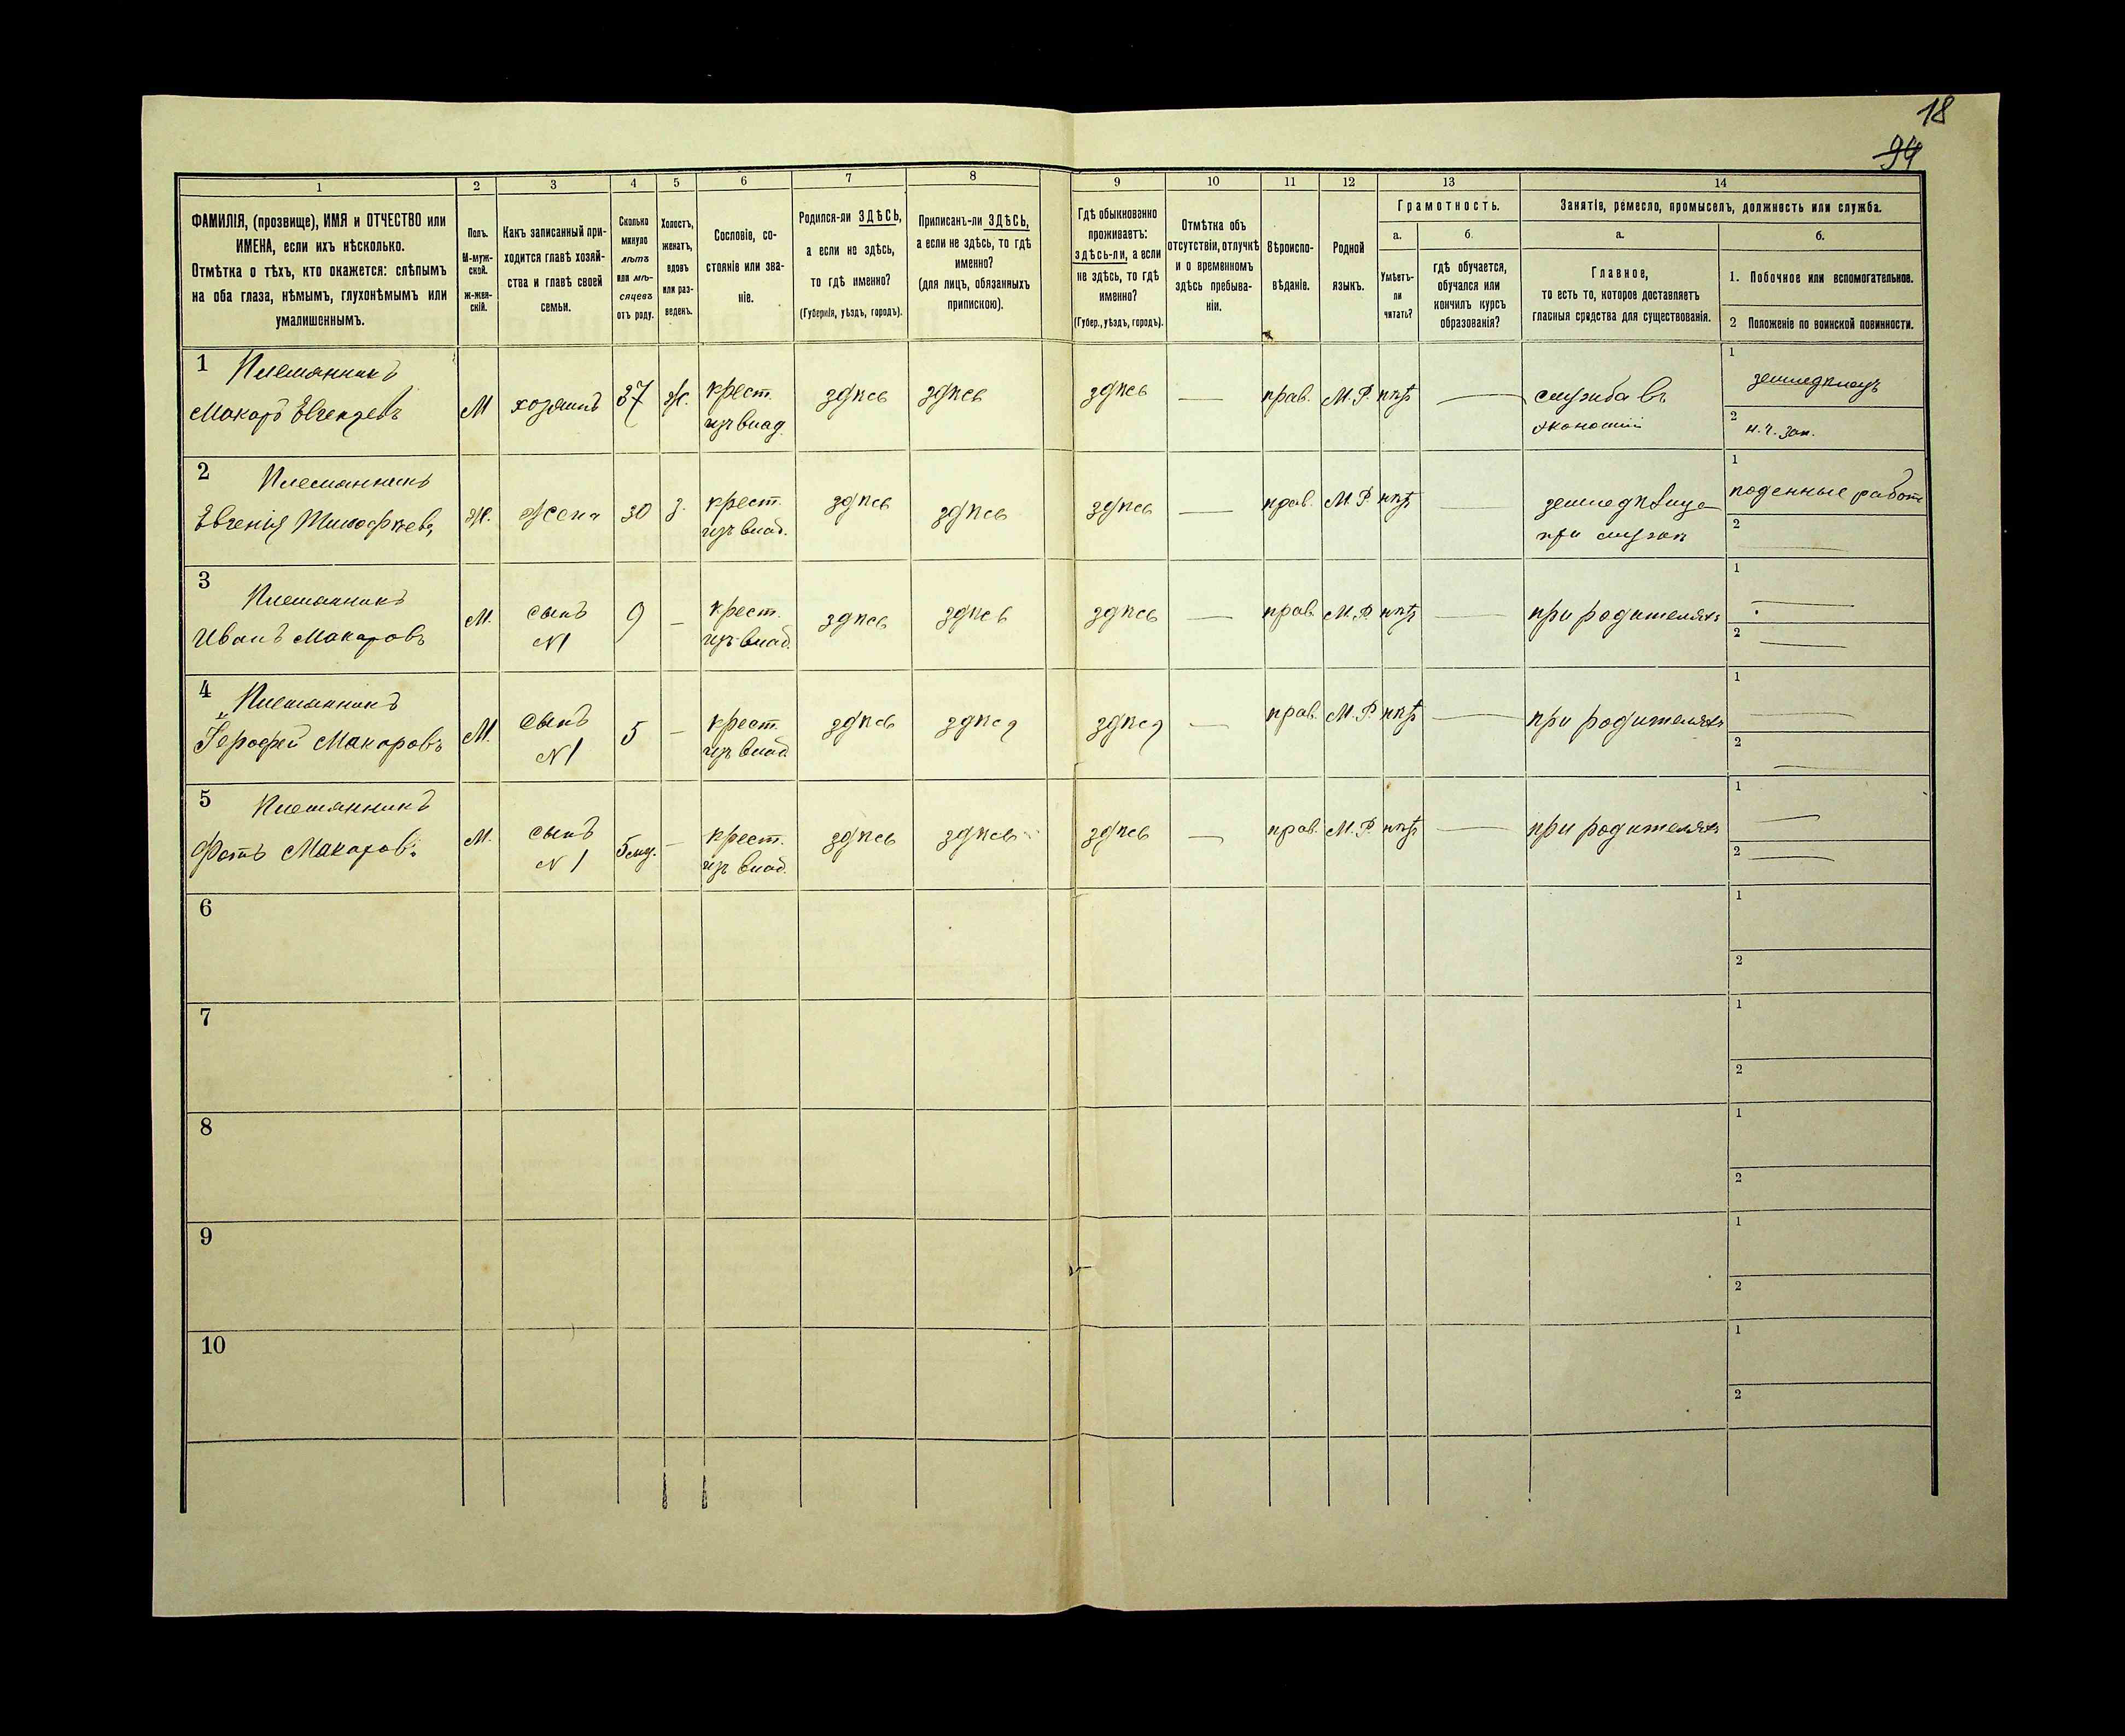 18
94
1
2
3
4
5
6
7
8
9
10
11
12
13
14
ФАМИЛІЯ, (прозвище), ИМЯ и ОТЧЕСТВО или
ИМЕНА, если ихъ нѣсколько.
Отмѣтка о тѣхъ, кто окажется: слѣпымъ
на оба глаза, нѣмымъ, глухонѣмымъ или
умалишеннымъ.
Полъ.
М-муж-
ской.
ж-жен-
скій.
Какъ записанный при-
ходится главѣ хозяй-
ства и главѣ своей
семьи.
Сколько
минуло
лѣтъ
или мѣ-
сяцевъ
отъ роду.
Холостъ,
женатъ,
вдовъ
или раз-
веденъ.
Сословіе, со-
стояніе или зва-
ніе.
Родился-ли ЗДѢСЬ,
а если не здѣсь,
то гдѣ именно?
(Губернія, уѣздъ, городъ).
Приписанъ-ли ЗДѢСЬ,
а если не здѣсь, то гдѣ
именно?
(для лицъ, обязанныхъ
припискою).
Гдѣ обыкновенно
проживаетъ:
здѣсь-ли, а если
не здѣсь, то гдѣ
именно?
(Губер., уѣздъ, городъ).
Отмѣтка объ
отсутствіи, отлучкѣ
и о временномъ
здѣсь пребыва-
ніи.
Вѣроиспо-
вѣданіе.
Родной
языкъ.
Грамотность.
а.
Умѣетъ-
ли
читать?
б.
гдѣ обучается,
обучался или
кончилъ курсъ
образованія?
Занятіе, ремесло, промыселъ, должность или служба.
а.
Главное,
то есть то, которое доставляетъ
главныя средства для существованія.
б.
1. Побочное или вспомогательное.
2 Положеніе по воинской повинности.
1 Племянникъ
Макаръ
М
хозяинъ
37
ж.
крест.
изъ влад.
здѣсь
здѣсь
здѣсь
—
прав.
М. Р.
нѣтъ
—
служба въ
экономіи
1
земледѣлецъ
2
2 Племянникъ
Евгенія
ж.
жена
30
з.
крест.
изъ влад.
здѣсь
здѣсь
здѣсь
—
прав.
М. Р.
нѣтъ
—
при мужѣ
1
поденные работ
2 —
3 Племянникъ
Иванъ Макаровъ
М.
сынъ
N 1
9
—
крест.
изъ влад.
здѣсь
здѣсь
здѣсь
—
прав.
М. Р.
нѣтъ
—
при родителяхъ
1 —
2 —
4 Племянникъ
Ерофей Макаровъ
М.
сынъ
N 1
5
—
крест.
изъ влад
здѣсь
здѣсь
здѣсь
—
прав.
М. Р.
нѣтъ
—
при родителяхъ
1 —
2 —
5 Племянникъ
Фотъ Макаровъ
М.
сынъ
N 1
5 мц.
—
крест.
изъ влад.
здѣсь
здѣсь
здѣсь
—
прав.
М. Р.
нѣтъ
—
при родителяхъ
1 —
2 —
6
1
2
7
1
2
8
1
2
9
1
2
10
1
2